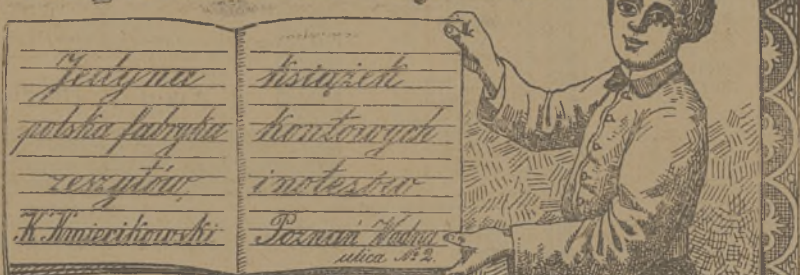 Jedyna
polska fabryka
zeszytów,
K. Kmiecikowski
książek
kontowych
i notesów
Poznań Wodna
ulica № 2.